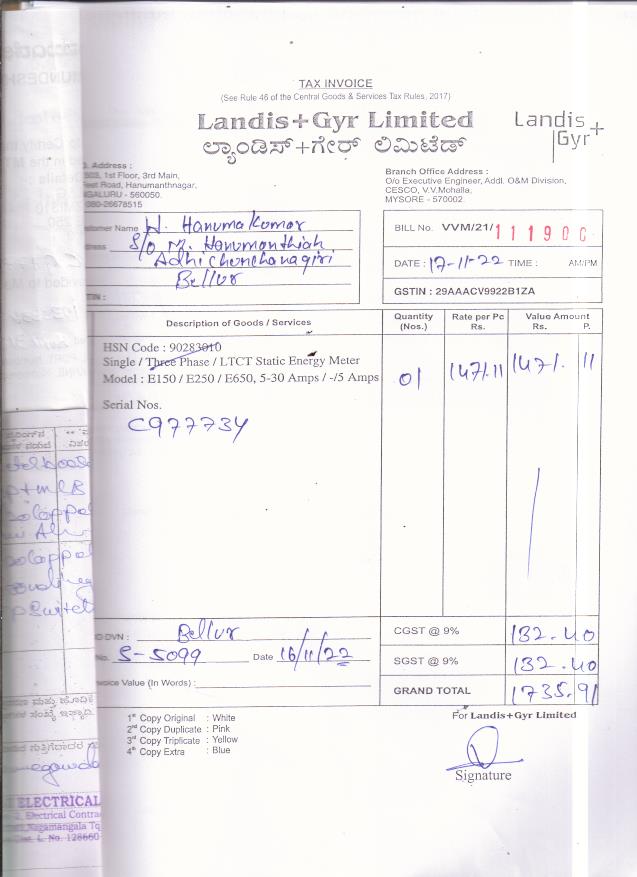 TAX INVOICE
(See Rule 46 of the Central Goods & Services Tax Rules, 2017)
Landis+Gyr Limited
ಲ್ಯಾಂಡಿಸ್+ಗೇರ್ ಲಿಮಿಟೆಡ್
Landis+
Gyr
Address :
1st Floor, 3rd Main,
Road, Hanumanthnagar,
560050.
080-26678515
Branch Office Address :
O/o Executive Engineer, Addl. O&M Division,
CESCO, V.V.Mohalla,
MYSORE - 570002.
Name H. Hanuma Kumar
S/o M. Hanumanthiah
Adhichunchanagiri
Bellur
BILL No. VVM/21/ 11190
DATE : 17-11-22 TIME : AM/PM
GSTIN : 29AAACV9922B1ZA
Description of Goods / Services
Quantity (Nos.)
Rate per Pc Rs.
Value Amount Rs. P.
HSN Code : 90283010
Single / Three Phase / LTCT Static Energy Meter
Model : E150 / E250 / E650, 5-30 Amps / -/5 Amps
01 1471.11 1471. 11
Serial Nos.
C977734
DVN : Bellur
CGST @ 9% 132.40
No. S-5099 Date 16/11/22
SGST @ 9% 132.40
Value (In Words) :
GRAND TOTAL 1735.91
1st Copy Original : White
2nd Copy Duplicate : Pink
3rd Copy Triplicate : Yellow
4th Copy Extra : Blue
For Landis+Gyr Limited
Signature
ELECTRICAL
Electrical Contra
Nagamangala Tq
L. No. 128660